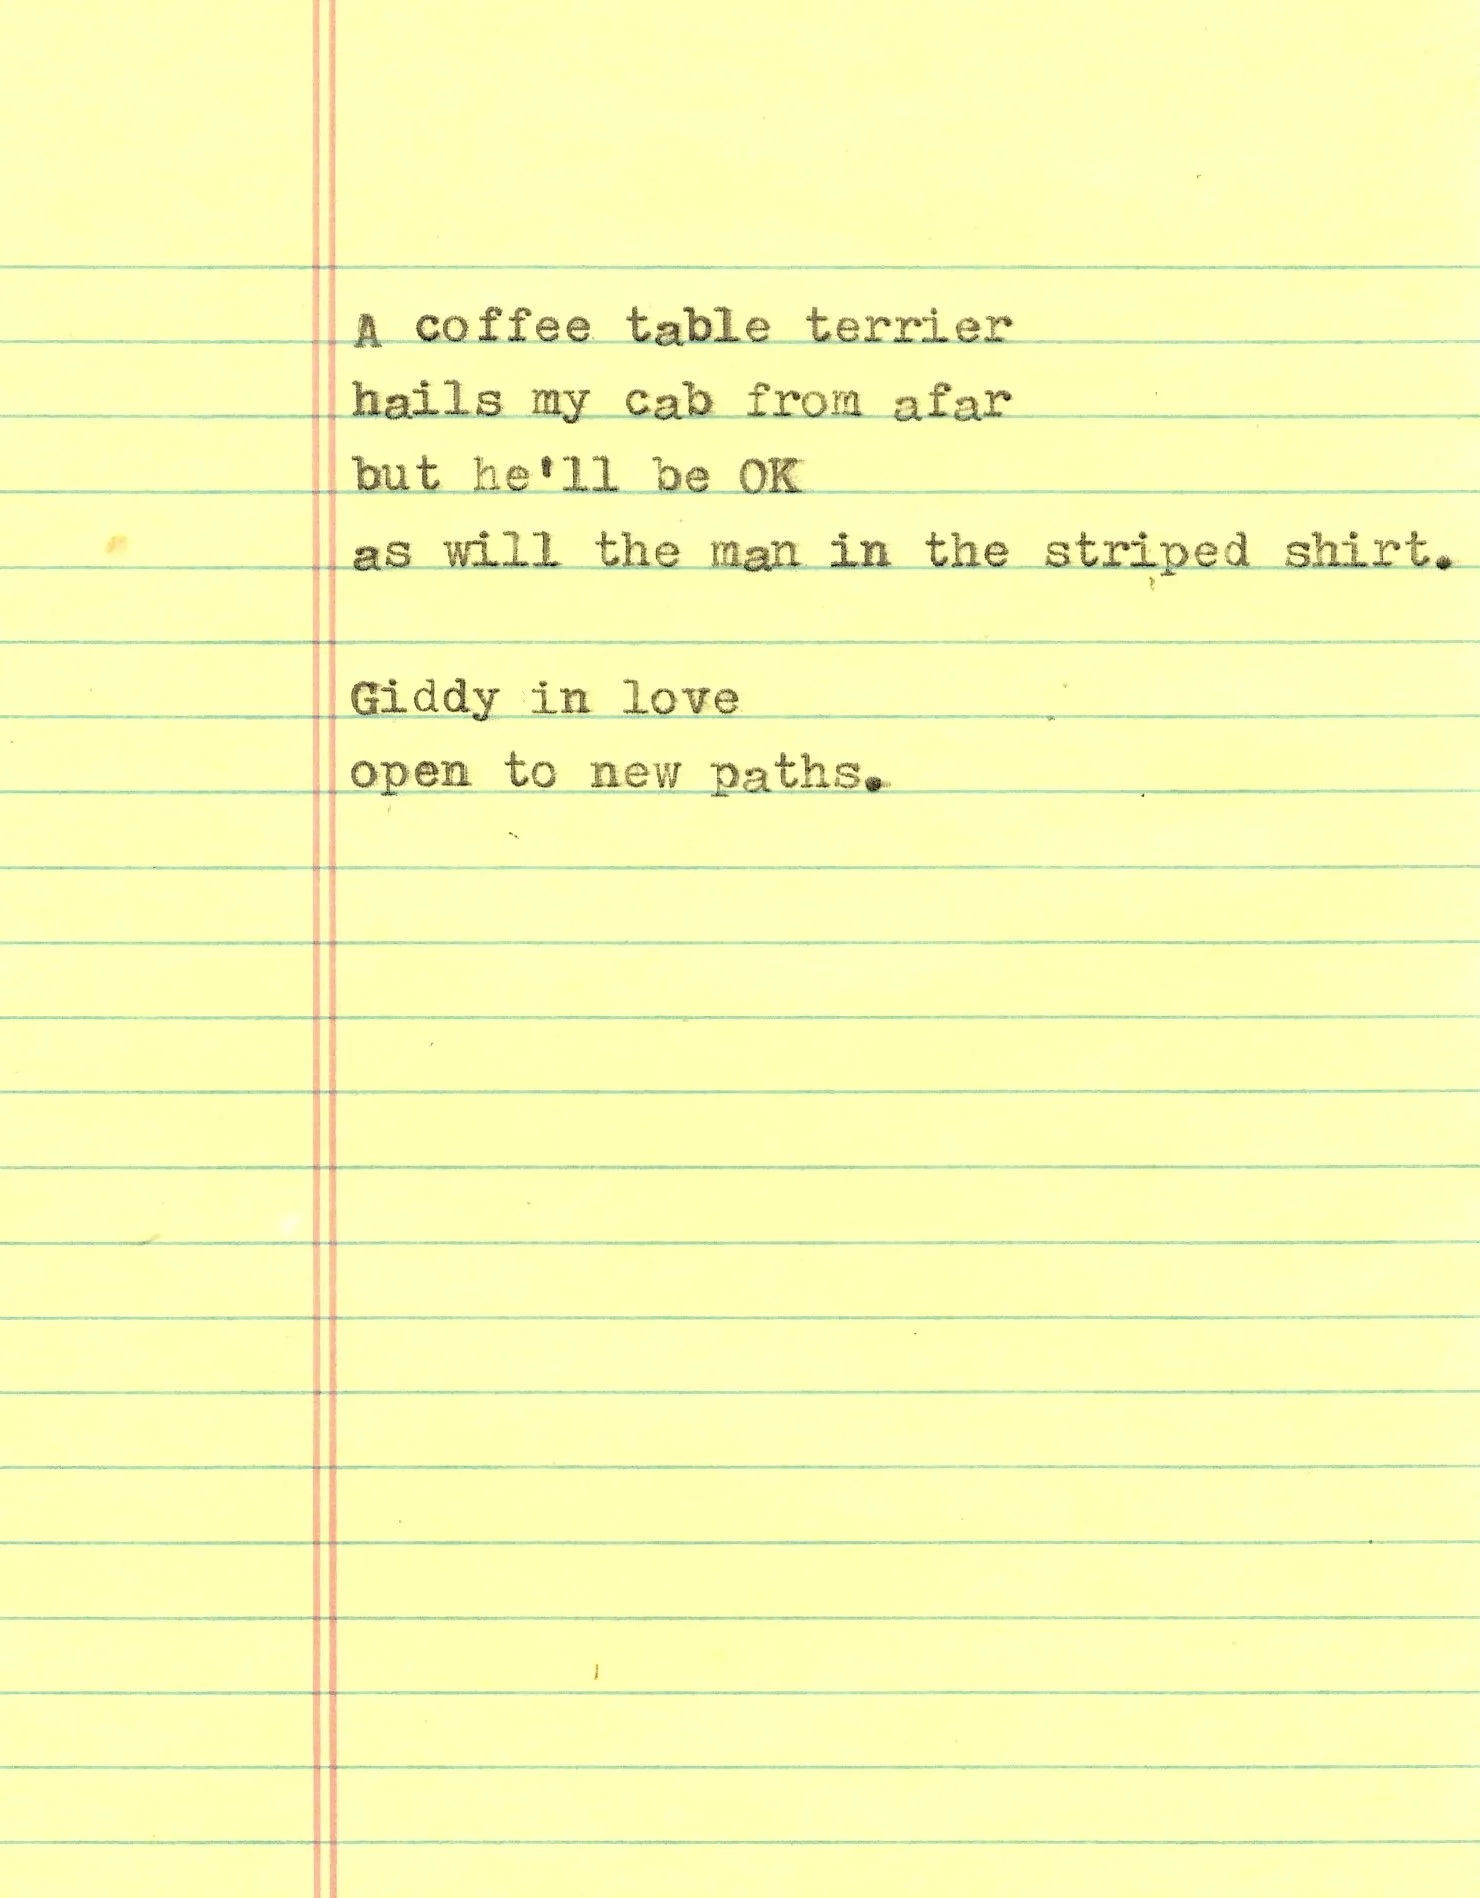 A coffee table terrier
hails my cab from afar
but he'll be OK
as will the man in the striped shirt.
Giddy in love
open to new paths.